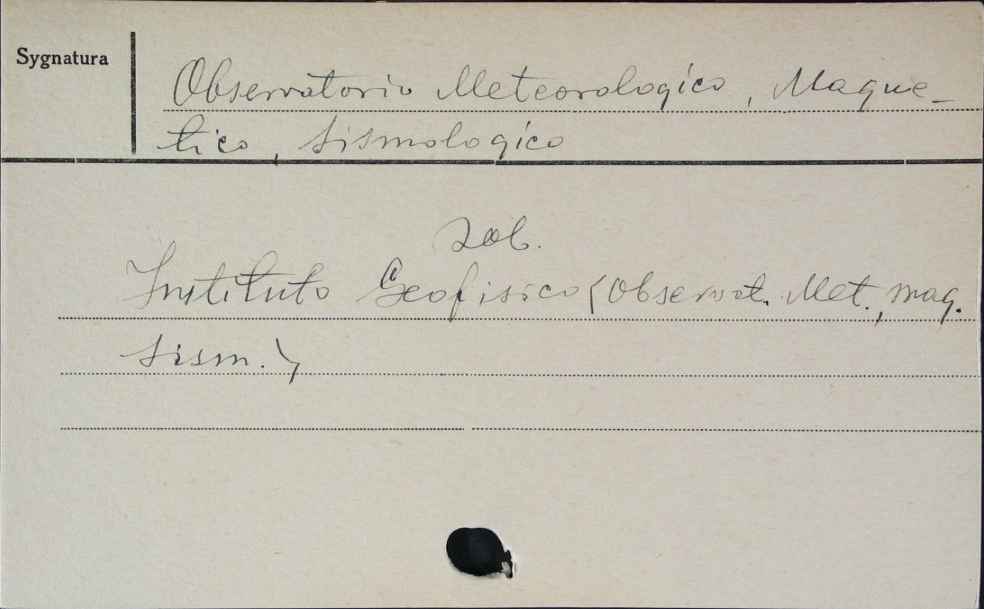 Sygnatura
Observatorio Meteorologico, Magne-
tico, sismologico
zob.
Instituto Geofisico (Observat. Met., mag.
sism.)